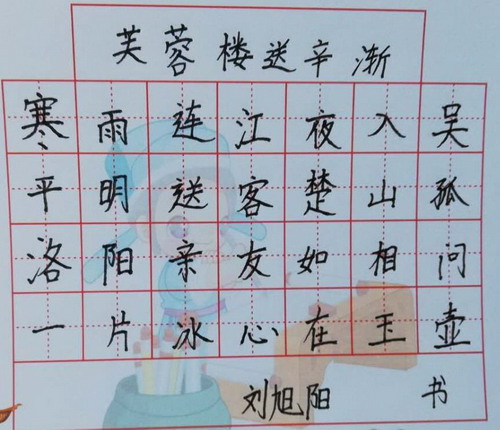 芙蓉楼送辛渐
寒雨连江夜入吴
平明送客楚山孤
洛阳亲友如相问
一片冰心在玉壶
刘旭阳 书